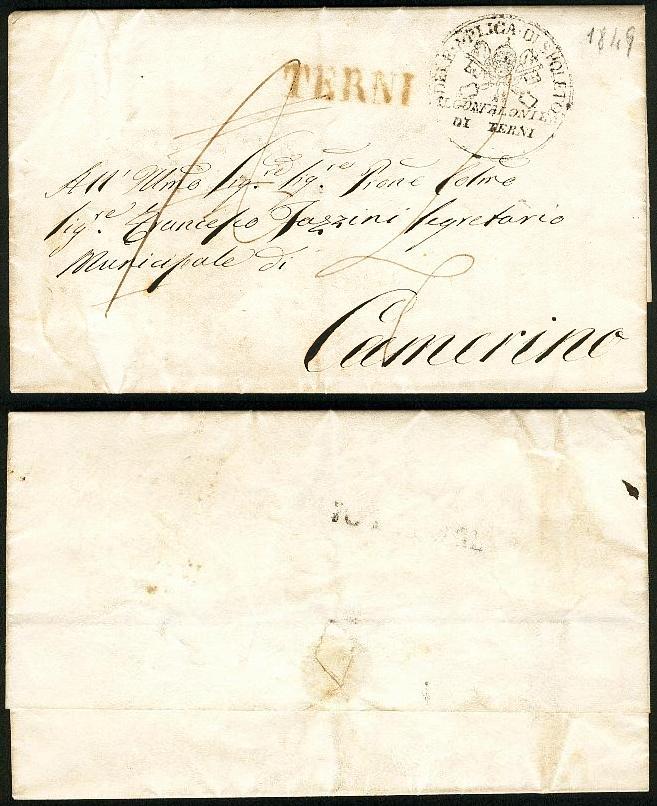 1849
TERNI
DELEG. APLICA. DI SPOLETO
IL GONFALONIERE
DI TERNI
All' Illmo Sigre Sigre Prone Colmo
Sigre Francesco Fazzini Segretario
Municipale di
Camerino